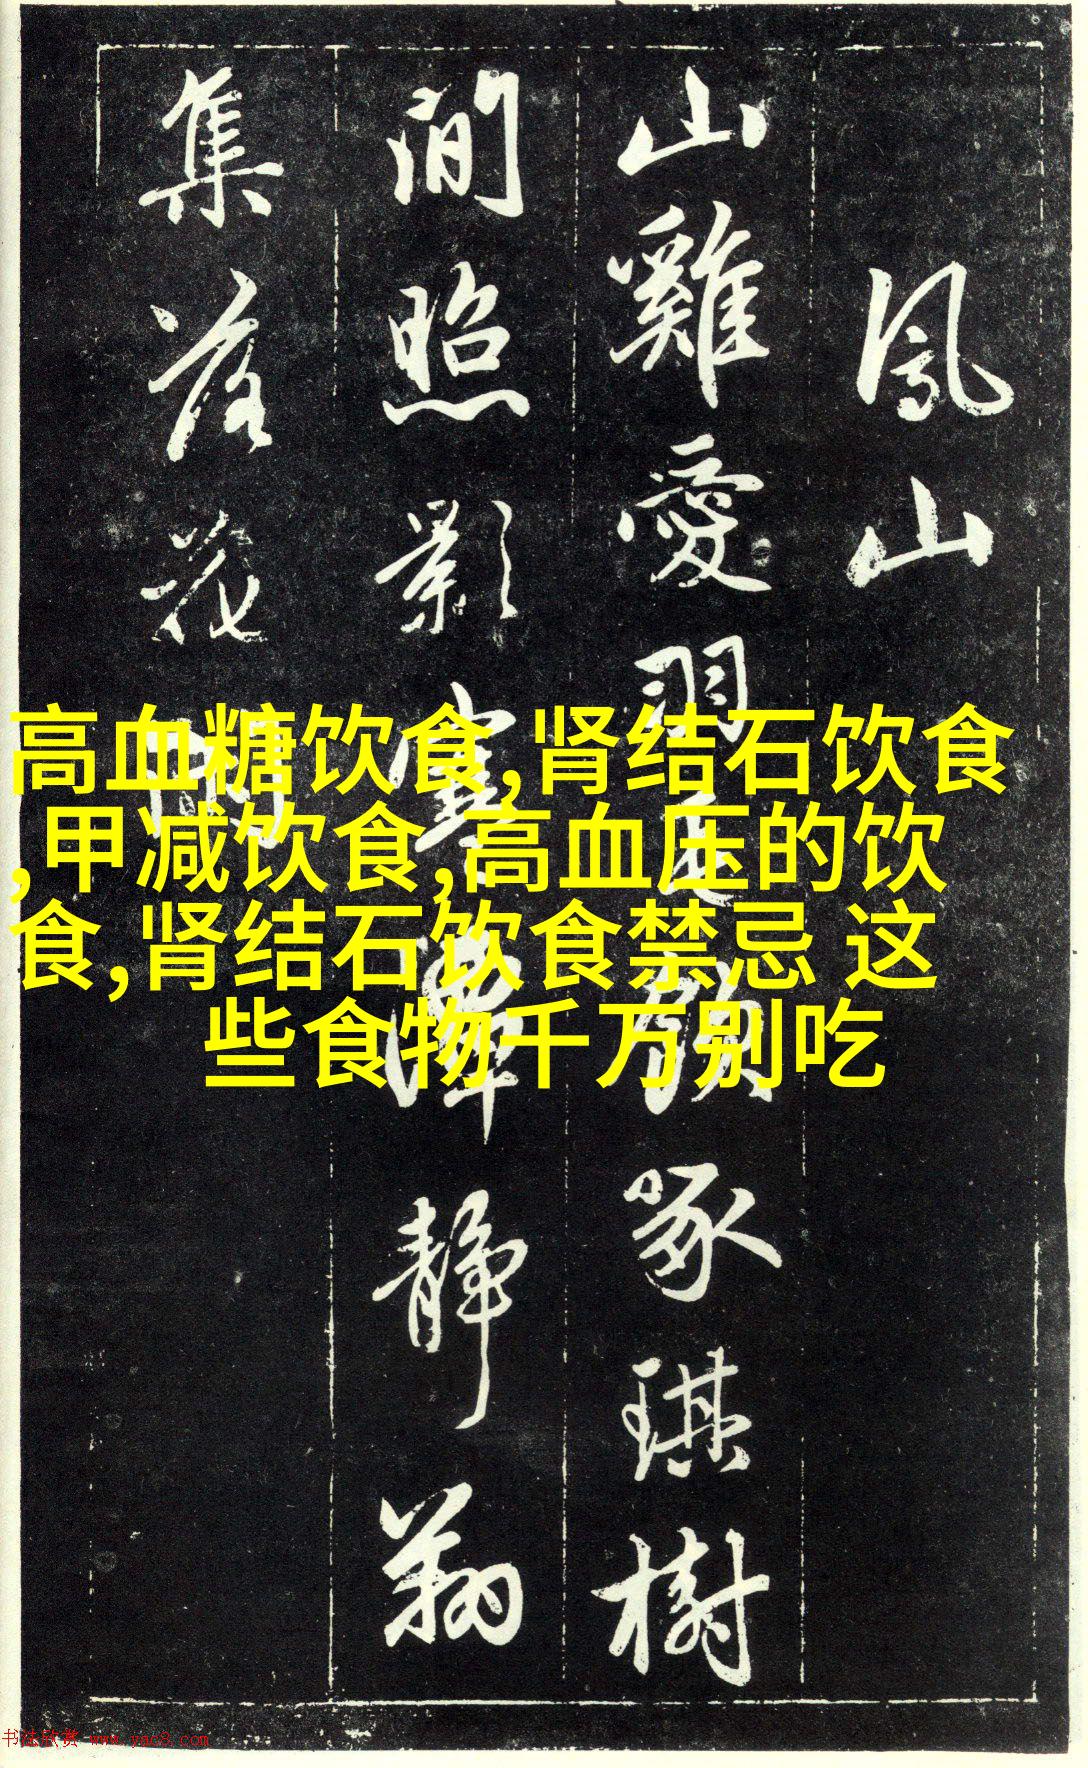 風山
山雞愛羽
啄琪樹
間照影寒潭靜翔
集落花
高血糖饮食,肾结石饮食
,甲减饮食,高血压的饮
食,肾结石饮食禁忌 这
些食物千万别吃
书法欣赏 www.yac8.com